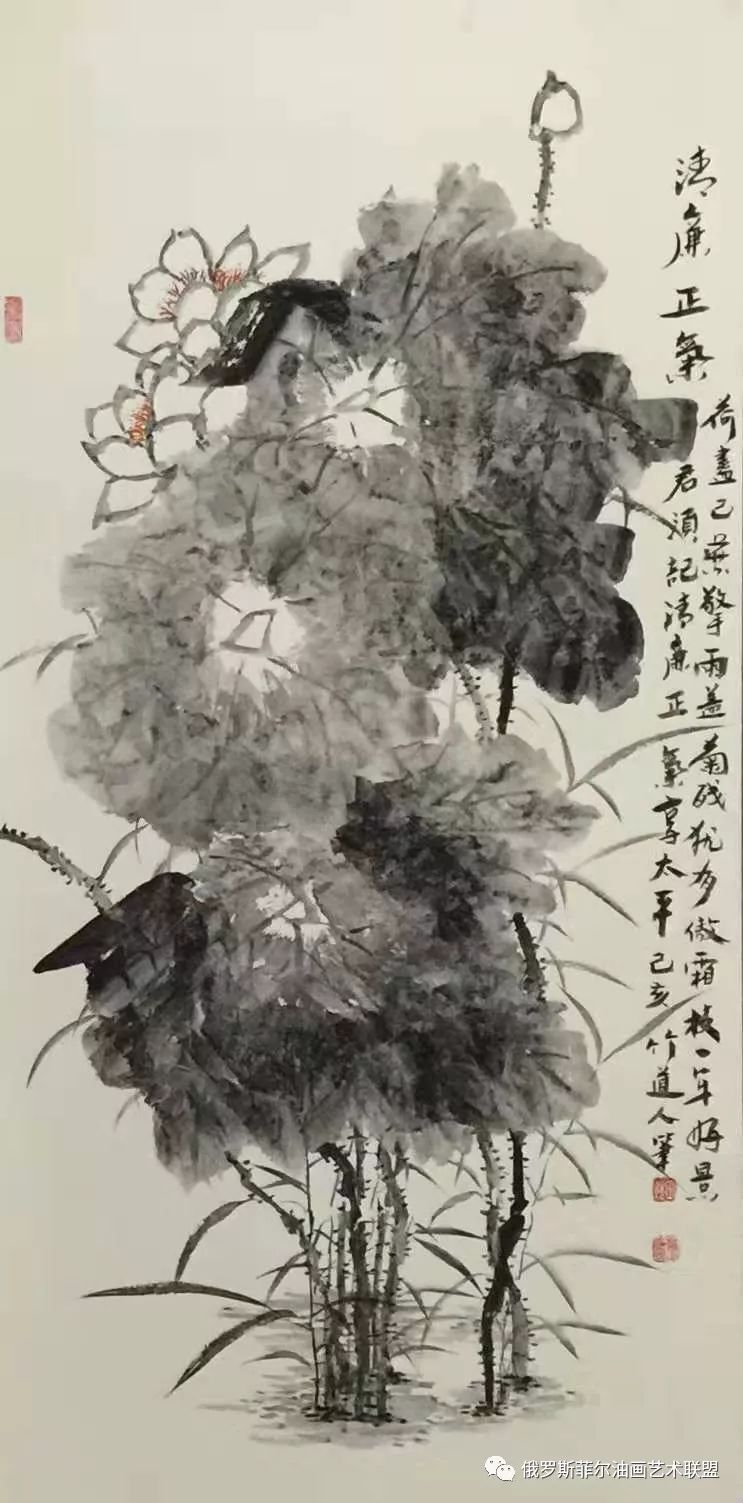 清廉正氣
荷盡已無擎雨蓋菊残犹有傲霜枝一年好景
君須記清廉正氣享太平己亥竹道人筆
俄罗斯菲尔油画艺术联盟